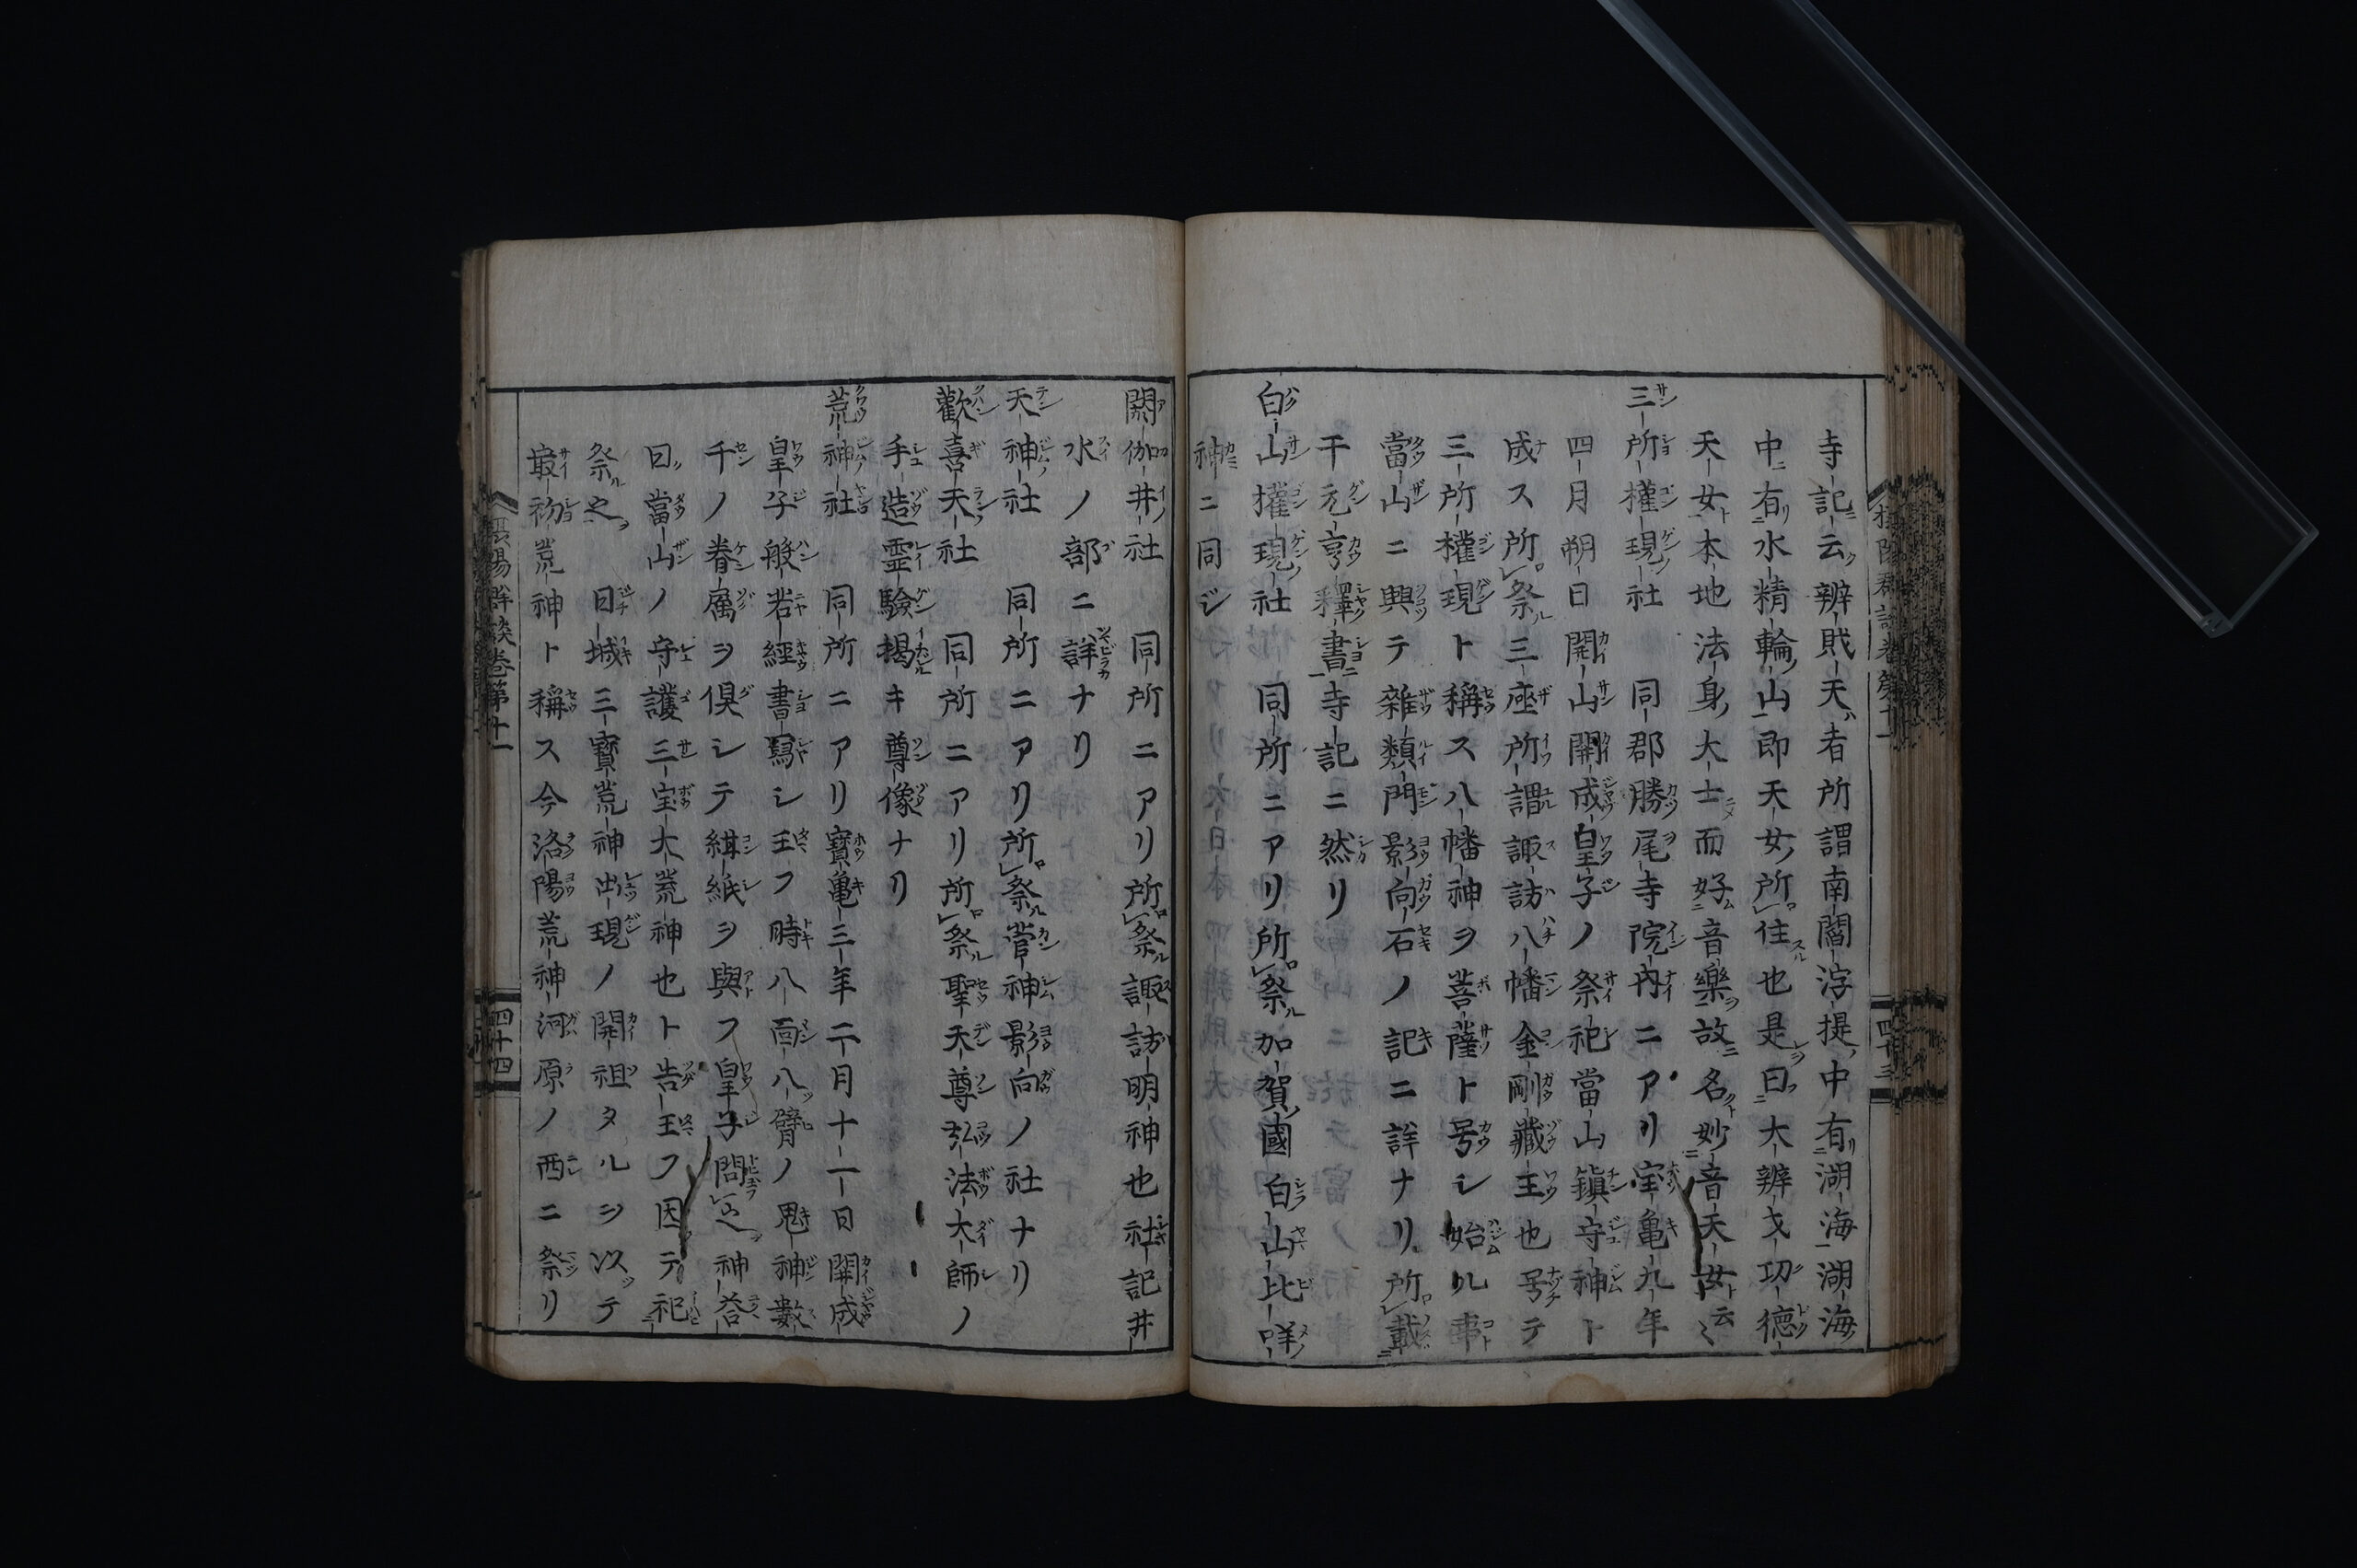 寺記云辨財天者所謂南閻浮提中有湖海湖海
中有水精輪山即天女所住也是曰大辨才功徳
天女本地法身大士而好音樂故名妙音天女云〻
三所權現社 同郡勝尾寺院内ニアリ宝亀九年
四月朔日開山開成皇子ノ祭祀當山鎮守神ト
成ス所祭三座所謂諏訪八幡金剛藏王也号テ
三所權現ト稱ス八幡神ヲ菩薩ト号シ始ル事
當山ニ興テ雜類門影向石ノ記ニ詳ナリ所載
干元亨釋書寺記ニ然リ
白山權現社 同所ニアリ所祭加賀國白山比咩
神ニ同ジ
閼伽井社 同所ニアリ所祭諏訪明神也社記井
水ノ部ニ詳ナリ
天神社 同所ニアリ所祭菅神影向ノ社ナリ
歡喜天社 同所ニアリ所祭聖天尊弘法大師ノ
手造霊驗掲キ尊像ナリ
荒神社 同所ニアリ寳亀三年二月十一日開成
皇子般若經書寫シ玉フ時八面八臂ノ鬼神數
千ノ眷属ヲ倶シテ紺紙ヲ與フ皇子問之神答
曰當山ノ守護三宝大荒神也ト告玉フ因テ祀
祭之 日域三寳荒神出現ノ開祖タルヲ以テ
最初荒神ト稱ス今洛陽荒神河原ノ西ニ祭リ
攝陽群談巻第十一 四十四
四十三